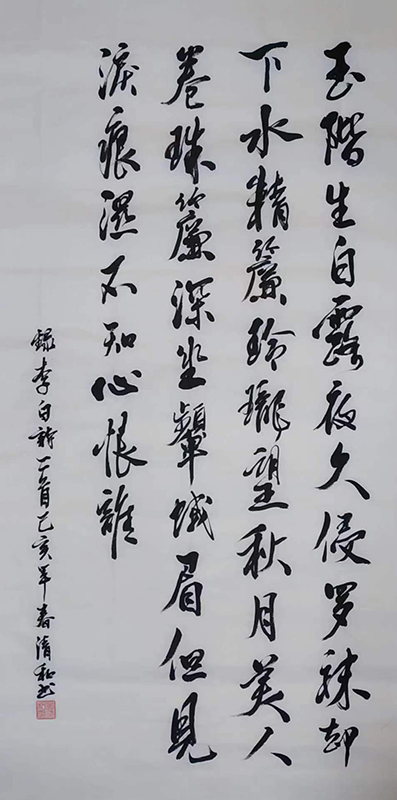 玉階生白露夜久侵罗袜却
下水精簾玲瓏望秋月美人
卷珠簾深坐顰蛾眉但見
淚痕濕不知心恨誰
録李白詩二首己亥年春清和书